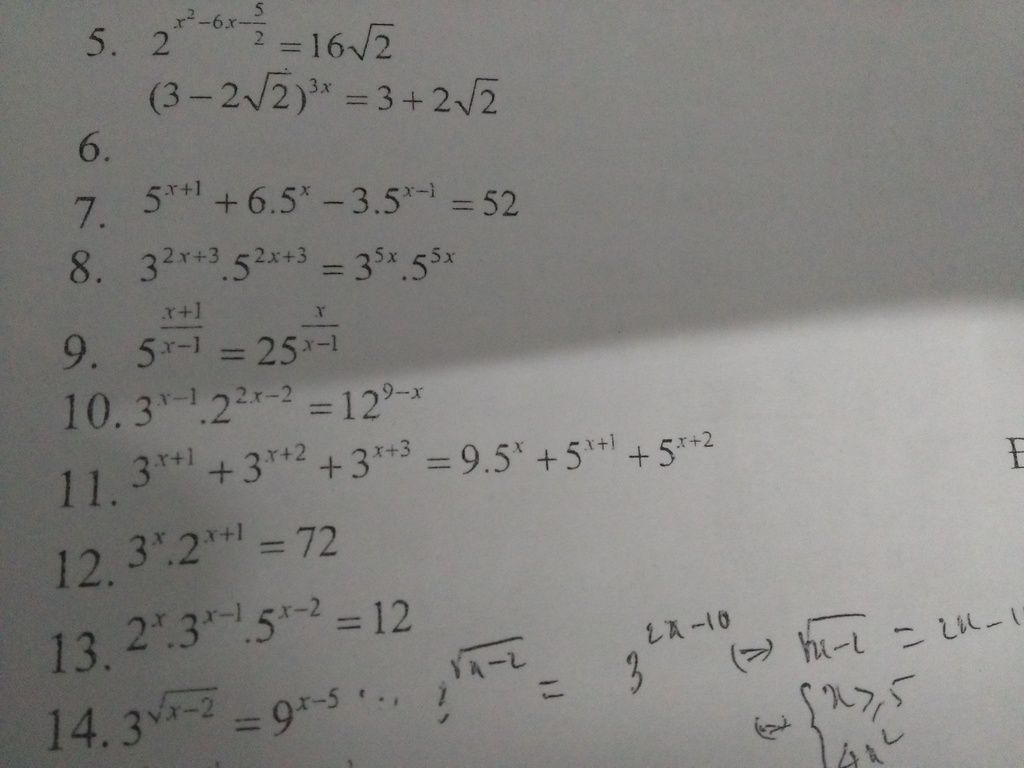 5. 2^{x²-6x-5/2} = 16√2
(3 - 2√2)^{3x} = 3 + 2√2
6.
7. 5^{x+1} + 6.5^x - 3.5^{x-1} = 52
8. 3^{2x+3}.5^{2x+3} = 3^{5x}.5^{5x}
9. 5^{(x+1)/(x-1)} = 25^{x/(x-1)}
10. 3^{x-1}.2^{2x-2} = 12^{9-x}
11. 3^{x+1} + 3^{x+2} + 3^{x+3} = 9.5^x + 5^{x+1} + 5^{x+2}
12. 3^x.2^{x+1} = 72
13. 2^x.3^{x-1}.5^{x-2} = 12
14. 3^{√(x-2)} = 9^{x-5} 3^{√(x-2)} = 3^{2x-10} (=) √(x-2) = 2x-1
(=) { x ≥ 5
4x²